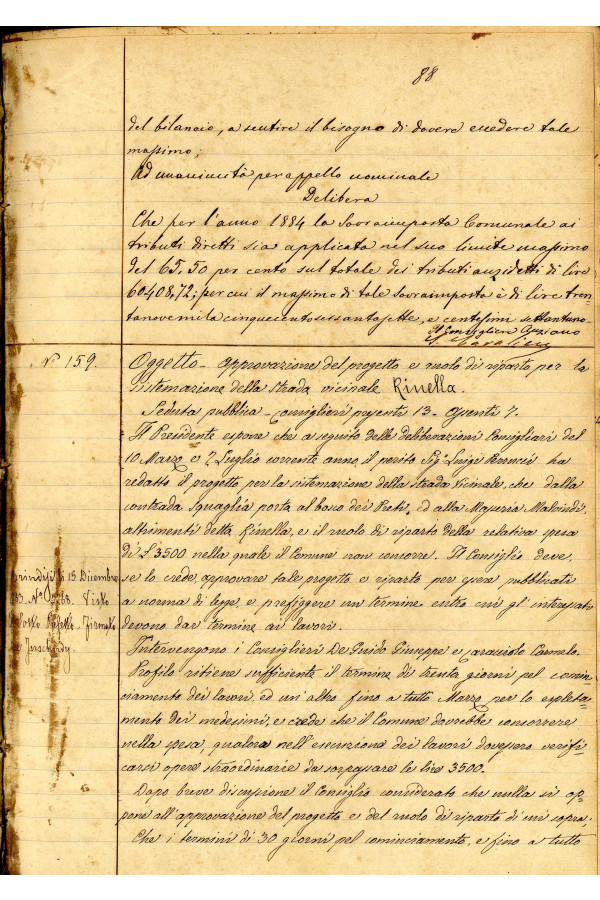 88
del bilancio, a sentire il bisogno di dovere eccedere tale
massimo;
Ad unanimità per appello nominale
Delibera
Che per l'anno 1884 la Sovraimposta Comunale ai
tributi diretti sia applicata nel suo limite massimo
del 65,50 per cento sul totale dei tributi anzidetti di lire
60408,72; per cui il massimo di tale Sovraimposta è di lire tren-
tanovemila cinquecentosessantasette, e centesimi settantuno
Il Consigliere Anziano
N° 159.
Oggetto - Approvazione del progetto e ruolo di riparto per la
sistemazione della strada vicinale Rinella.
Seduta pubblica - Consiglieri presenti 13 - assenti 7.
Il Presidente espone che a seguito delle deliberazioni Consigliari del
10 Marzo e 2 Luglio corrente anno, il perito Sig. Luigi ha
redatto il progetto per la sistemazione della strada Vicinale, che dalla
contrada Sguaglia porta al bosco dei Preti, ed alla Masseria Malvindi,
altrimenti detta Rinella, e il ruolo di riparto della relativa spesa
di £ 3500 nella quale il Comune non concorre. Il Consiglio deve,
se lo crede, approvare tale progetto e riparto per essere pubblicati
a norma di legge, e prefiggere un termine entro cui gl'interessati
devono dar termine ai lavori.
Brindisi li 15 Dicembre
Visto
Prefetto - Firmato
Intervengono i Consiglieri De Guido Giuseppe e Caracciolo Carmelo.
Profilo ritiene sufficiente il termine di trenta giorni pel comin-
ciamento dei lavori, ed un'altro fino a tutto Marzo per lo espleta-
mento dei medesimi, e crede che il Comune dovrebbe concorrere
nella spesa, qualora nell'esecuzione dei lavori dovessero verifi-
carsi opere straordinarie da sorpassare le lire 3500.
Dopo breve discussione il Consiglio considerato che nulla si op-
pone all'approvazione del progetto e del ruolo di riparto di cui sopra;
Che i termini di 30 giorni pel cominciamento, e fino a tutto